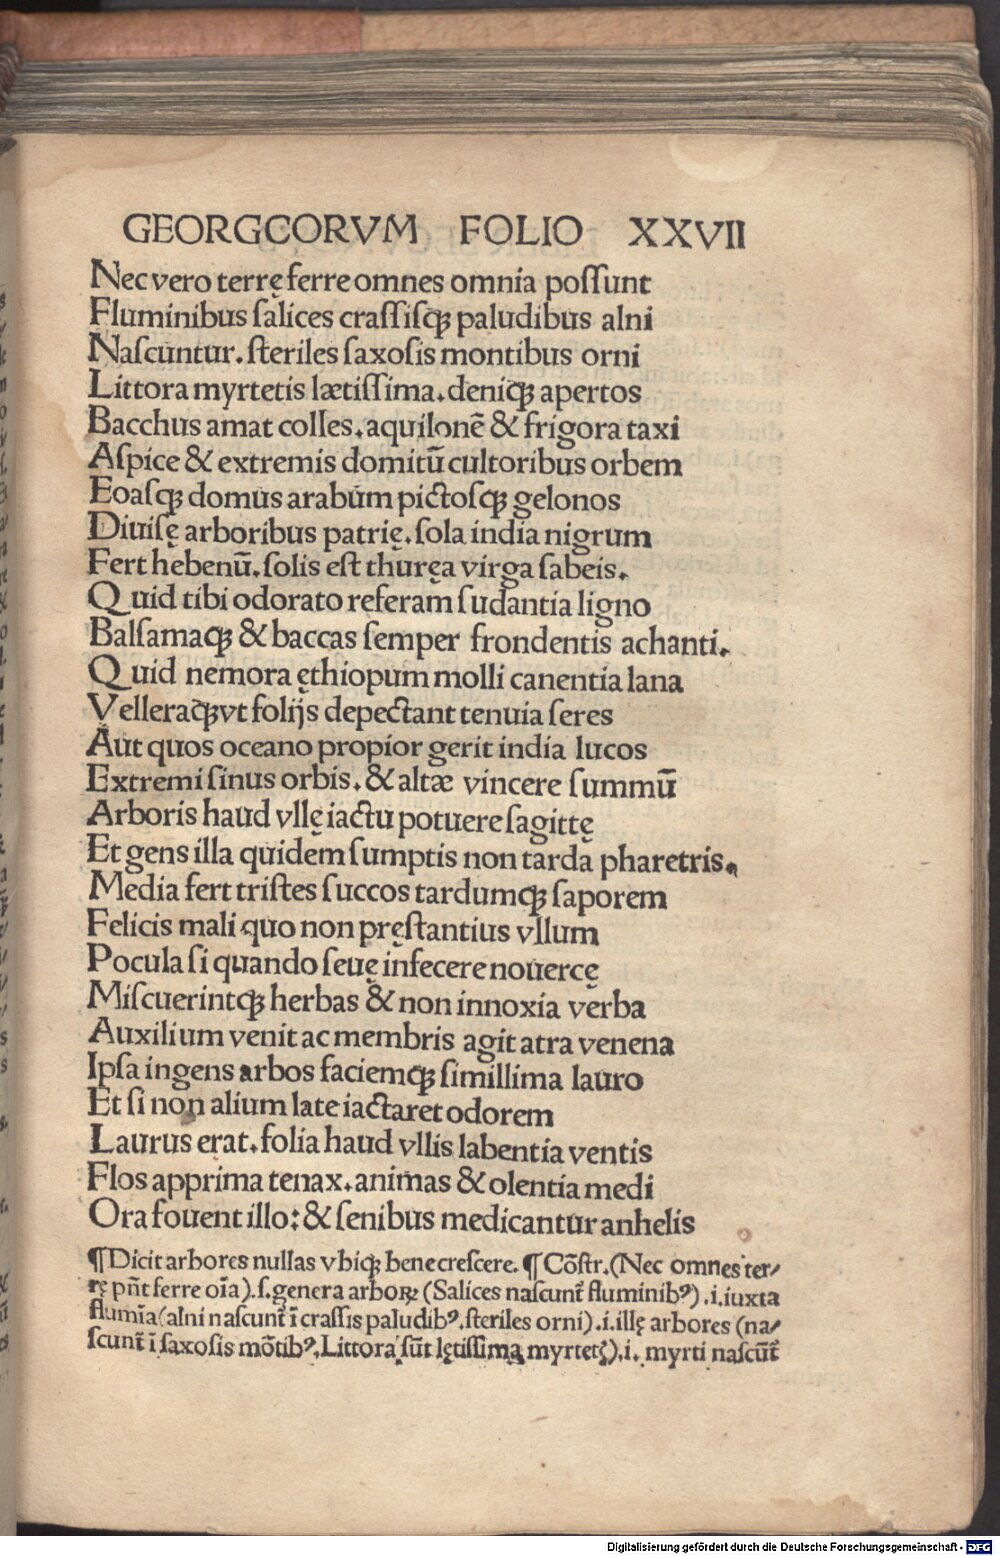 GEORGCORVM FOLIO XXVII
Nec vero terrę ferre omnes omnia poſſunt
Fluminibus ſalices craſſiſqꝫ paludibus alni
Naſcuntur. ſteriles ſaxoſis montibus orni
Littora myrtetis lætiſſima. deniqꝫ apertos
Bacchus amat colles. aquilonē & frigora taxi
Aſpice & extremis domitū cultoribus orbem
Eoaſqꝫ domus arabum pictoſqꝫ gelonos
Diuiſę arboribus patrię. ſola india nigrum
Fert hebenū. ſolis eſt thuręa virga ſabeis.
Quid tibi odorato referam ſudantia ligno
Balſamaqꝫ & baccas ſemper frondentis achanti.
Quid nemora ęthiopum molli canentia lana
Velleraqꝫ vt folijs depectant tenuia ſeres
Aut quos oceano propior gerit india lucos
Extremi ſinus orbis. & altæ vincere ſummū
Arboris haud vllę iactu potuere ſagittę
Et gens illa quidem ſumptis non tarda pharetris.
Media fert triſtes ſuccos tardumqꝫ ſaporem
Felicis mali quo non pręſtantius vllum
Pocula ſi quando ſeuę infecere nouercę
Miſcuerintqꝫ herbas & non innoxia verba
Auxilium venit ac membris agit atra venena
Ipſa ingens arbos faciemqꝫ ſimillima lauro
Et ſi non alium late iactaret odorem
Laurus erat. folia haud vllis labentia ventis
Flos apprima tenax. animas & olentia medi
Ora fouent illo: & ſenibus medicantur anhelis
¶Dicit arbores nullas vbiqꝫ bene creſcere. ¶Cōſtr. (Nec omnes ter⸗
rę pn̄t ferre oīa). ſ. genera arboꝝ (Salices naſcunt᷑ fluminibꝰ) .i. iuxta
flumīa (alni naſcunt᷑ ī craſſis paludibꝰ. ſteriles orni) .i. illę arbores (na⸗
ſcunt᷑ ī ſaxoſis mōtibꝰ. Littora ſūt lętiſſima myrtetꝭ) .i. myrti naſcūt᷑
Digitalisierung gefördert durch die Deutsche Forschungsgemeinschaft - DFG